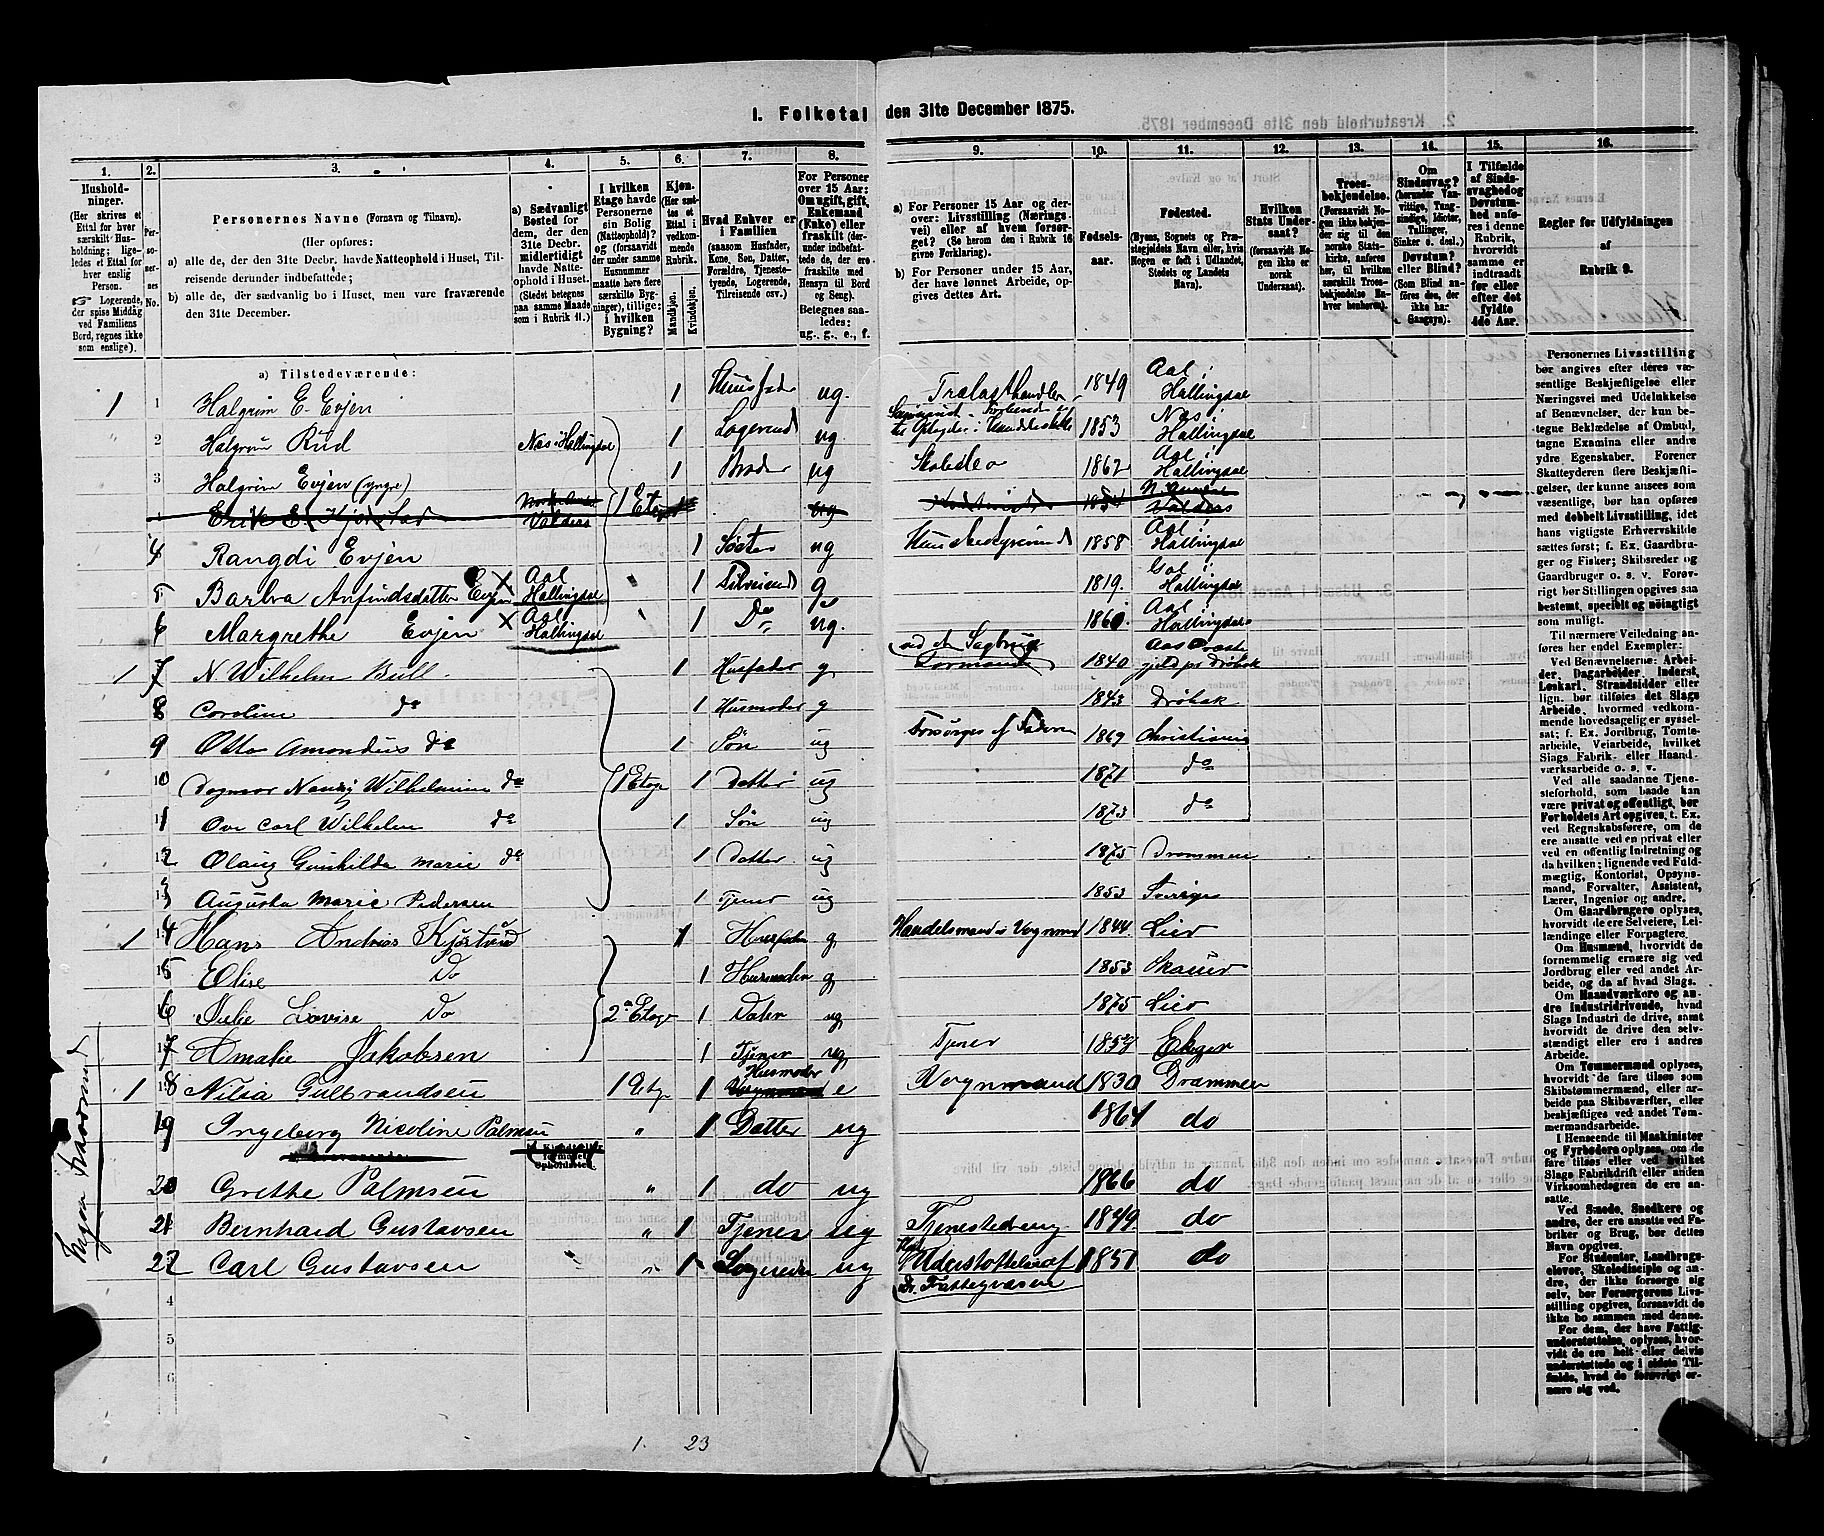 1. Folketal den 31te December 1875.
1. 2. 3. 4. 5. 6. 7. 8. 9. 10. 11. 12. 13. 14. 15. 16.
Husholdninger. (Her skrives et Ettal for hver særskilt Husholdning; ligeledes et Ettal for hver enslig Person. ☞ Logerende, der spise Middag ved Familiens Bord, regnes ikke som enslige.)
Personernes No.
Personernes Navne (Fornavn og Tilnavn).
(Her opføres:
a) alle de, der den 31te Decbr. havde Natteophold i Huset, Tilreisende derunder indbefattede;
b) alle de, der sædvanlig bo i Huset, men vare fraværende den 31te December.
a) Sædvanligt Bosted for dem, der den 31te Decbr. midlertidigt havde Natteophold i Huset. (Stedet betegnes paa samme Maade som i Rubrik 11.)
I hvilken Etage havde Personerne sin Bolig (Natteophold)? og (forsaavidt der under samme Husnummer maatte høre flere særskilte Bygninger), tillige: i hvilken Bygning?
Kjøn. (Her sættes et Ettal i vedkommende Rubrik. Mandkjøn. Kvindekjøn.
Hvad Enhver er i Familien (saasom Husfader, Kone, Søn, Datter, Forældre, Tjenestetyende, Logerende, Tilreisende osv.)
For Personer over 15 Aar: Om ugift, gift, Enkemand (Enke) eller fraskilt (derunder indbefattede de, der ere fraskilte med Hensyn til Bord og Seng). Betegnes saaledes: ug., g., e., f.
a) For Personer 15 Aar og derover: Livsstilling (Næringsvei) eller af hvem forsørget? (Se herom den i Rubrik 16 givne Forklaring).
b) For Personer under 15 Aar, der have lønnet Arbeide, opgives dettes Art.
Fødselsaar.
Fødested. (Byens, Sognets og Præstegjeldets Navn eller, hvis Nogen er født i Udlandet, Stedets og Landets Navn).
Hvilken Stats Undersaat? (forsaavidt Nogen ikke er norsk Undersaat).
Troesbekjendelse. (Forsaavidt Nogen ikke bekjender sig til den norske Statskirke, anføres her, til hvilken særskilt Troesbekjendelse Enhver henhører).
Om Sindssvag? (herunder Vanvittige, Tungsindige, Idioter, Tullinger, Sinker o. desl.) Døvstum? eller Blind? (Som Blind anføres den, der ikke har Gangsyn).
I Tilfælde af Sindssvaghed og Døvstumhed anføres i denne Rubrik, hvorvidt samme er indtraadt før eller efter det fyldte 4de Aar.
Regler for Udfyldningen af Rubrik 9.
a) Tilstedeværende:
1 1 Halgrim E. Evjen 1 Huusfader ug. Trælasthandler 1849 Aal i Hallingdal
2 Halgrim Rud Nas i Hallingdal 1 Logerend ug 1853 Nas i Hallingdal
3 Halgrim Evjen (yngre) 1 Broder ug Skoleelev 1862 Aal i Hallingdal
Erik E. Kjørstad Valders 1 Etage ug 1854 Valders
4 Rangdi Evjen 1 Søster ug Huusbestyrerind 1858 Aal i Hallingdal
5 Barbra Anfindsdatter Evjen X Aal Hallingdal " 1 Tilreisend g 1819. Gol i Hallingdal
6 Margrethe Evjen X Aal Hallingdal " 1 Do ug. 1860 Aal i Hallingdal
1 7 N Wilhelm Bull 1 Husfader g ved et Sagbrug Formand 1840 Aas Præstegjeld pr Drøbak
8 Caroline do 1 Husmoder g 1843 Drøbak
9 Otto Amondus do 1 Søn ug Forsørges af Faderen 1869 Christiania
10 Dagmar Nanzy Wilhelmine do 1 Etage 1 Datter ug 1871 do
11 Ove Carl Wilhelm do 1 Søn ug 1873 do
12 Olaug Gunhilda Marie do 1 Datter ug 1875 Drammen
13 Augusta Marie Pedersen 1 Tjener ug 1853 Sverige
1 14 Hans Andreas Kjøstvid 1 Huusfader g Handelsmand i Vognmd 1844 Lier
15 Elise Do 1 Husmoder g 1853 Skouer
16 Julie Lovise Do 2den Etage 1 Dater ug 1875 Lier
17 Amalie Jakobsen 1 Tjener ug Tjener 1858 Eker
1 18 Nilia Gulbrandsen 1 Etg. 1 Husmoder e Vognmand 1830 Drammen
19 Ingeborg Nicoline Palmsen " 1 Datter ug 1864 do
20 Grethe Palmsen " 1 do ug 1866 do
21 Bernhard Gustavsen " 1 Tjener ug Tjenestedreng 1849 do
22 Carl Gustavsen " 1 Logerende ug Understøttes af Fattigvæsen 1851 do
4
5
6
Ingen fraværend
1. 23
Personernes Livsstilling bør angives efter deres væsentlige Beskjæftigelse eller Næringsvei med Udelukkelse af Benævnelser, der kun betegne Beklædelse af Ombud, tagne Examina eller andre ydre Egenskaber. Forener Skatteyderen flere Beskjæftigelser, der kunne ansees som væsentlige, bør han opføres med dobbelt Livsstilling, idet hans vigtigste Erhvervskilde sættes først; f. Ex. Gaardbruger og Fisker; Skibsreder og Gaardbruger o. s. v. Forøvrigt bør Stillingen opgives saa bestemt, specielt og nøiagtigt som muligt.
Til nærmere Veiledning anføres her endel Exempler:
Ved Benævnelserne: Arbeider, Dagarbeider, Inderst, Løskarl, Strandsidder eller lign. bør tilføies det Slags Arbeide, hvormed vedkommende hovedsagelig er sysselsat; f. Ex. Jordbrug, Tomtearbeide, Veiarbeide, hvilket Slags Fabrik- eller Haandværksarbeide o. s. v.
Ved alle saadanne Tjenesteforhold, som baade kan være privat og offentligt, bør Forholdets Art opgives, t. Ex. ved Regnskabsførere, om de ere ansatte ved en privat eller ved en offentlig Indretning og da hvilken; lignende ved Fuldmægtig, Kontorist, Opsynsmand, Forvalter, Assistent, Lærer, Ingeniør og andre.
Om Gaardbrugere oplyses, hvorvidt de ere Selveiere, Leilændinge eller Forpagtere.
Om Husmænd, hvorvidt de fornemmelig ernære sig ved Jordbrug eller ved andet Arbeide, og da af hvad Slags.
Om Haandværkere og andre industridrivende, hvad Slags Industri de drive, samt hvorvidt de drive den selvstændigt eller ere i andres Arbeide.
Om Tømmermænd oplyses, hvorvidt de fare tilsøs som Skibstømmermænd, eller arbeide paa Skibsværfter, eller beskjæftiges ved andet Tømmermandsarbeide.
I Henseende til Maskinister og Fyrbødere oplyses, om de fare tilsøs eller ved hvilket Slags Fabrikdrift eller anden Virksomhedsgren de ere ansatte.
Ved Smede, Snedkere og andre, der ere ansatte ved Fabriker og Brug, bør dettes Navn opgives.
For Studenter, Landbrugselever, Skoledisciple og andre, der ikke forsørge sig selv, bør Forsørgerens Livsstilling opgives, forsaavidt de ikke bo sammen med denne.
For dem, der have Fattigunderstøttelse, oplyses, hvorvidt de ere helt eller delvis understøttede og i sidste Tilfælde, hvad de forøvrigt ernære sig ved.